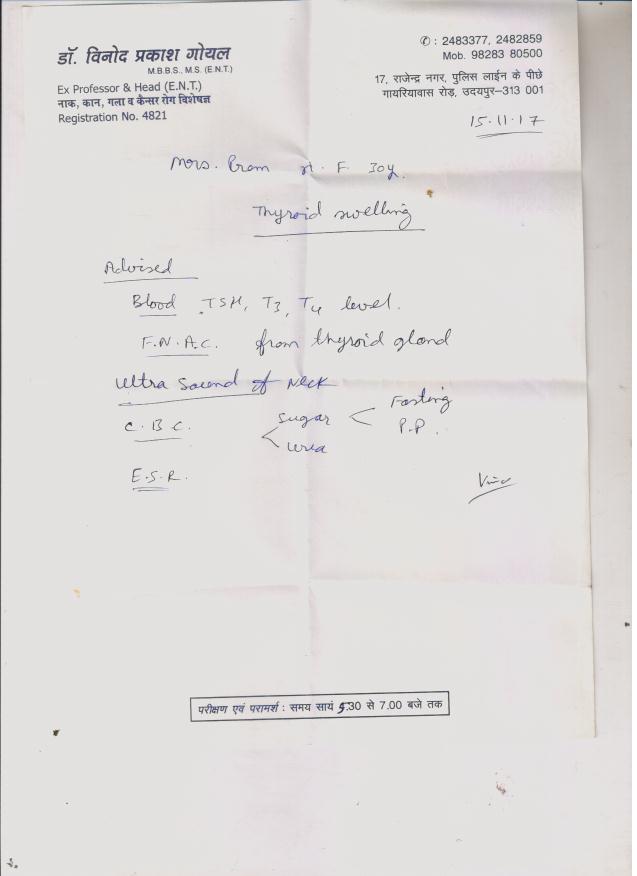 डॉ. विनोद प्रकाश गोयल
M.B.B.S., M.S. (E.N.T.)
Ex Professor & Head (E.N.T.)
नाक, कान, गला व कैन्सर रोग विशेषज्ञ
Registration No. 4821
✆ : 2483377, 2482859
Mob. 98283 80500
17, राजेन्द्र नगर, पुलिस लाईन के पीछे
गायरियावास रोड़, उदयपुर–313 001
15.11.17
Mrs. Prem F. 30y.
Thyroid swelling
Advised
Blood TSH, T3, T4 level.
F.N.A.C. from thyroid gland
Ultra Sound of Neck
C.B.C. Sugar < Fasting
P.P.
< Urea
E.S.R.
परीक्षण एवं परामर्श : समय सायं 5.30 से 7.00 बजे तक